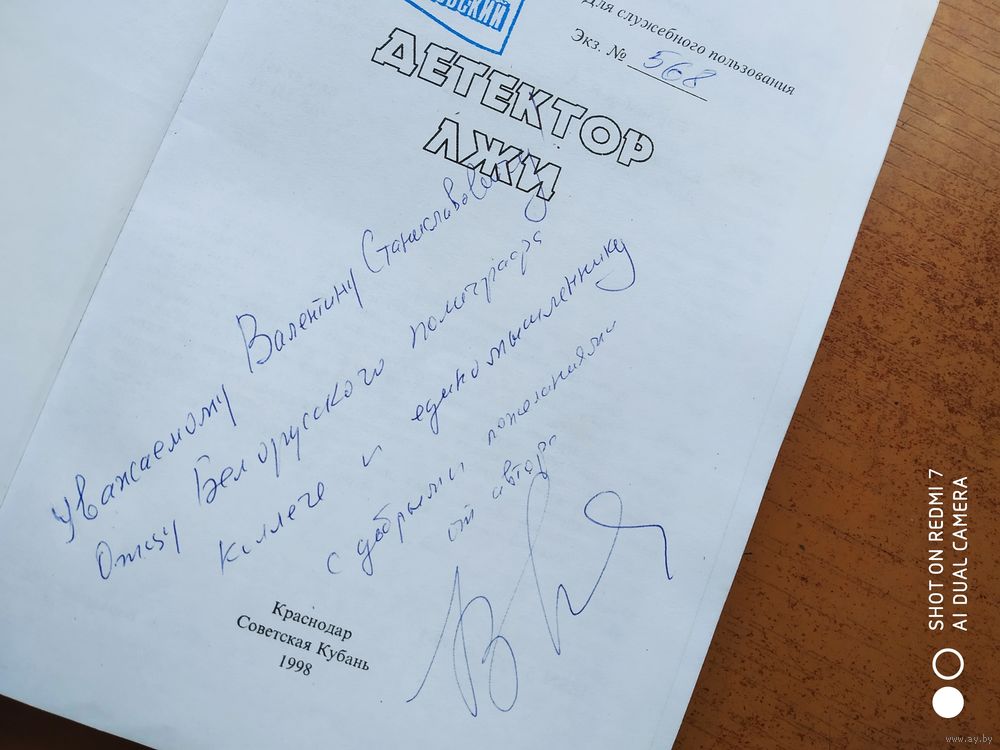 Для служебного пользования
Экз. № 568
ДЕТЕКТОР
ЛЖИ
Уважаемому Валентину Станиславовичу
Отцу Белорусского полиграфа
Коллеге и единомышленнику
с добрыми пожеланиями
от автора
Краснодар
Советская Кубань
1998
SHOT ON REDMI 7
AI DUAL CAMERA
www.ay.by